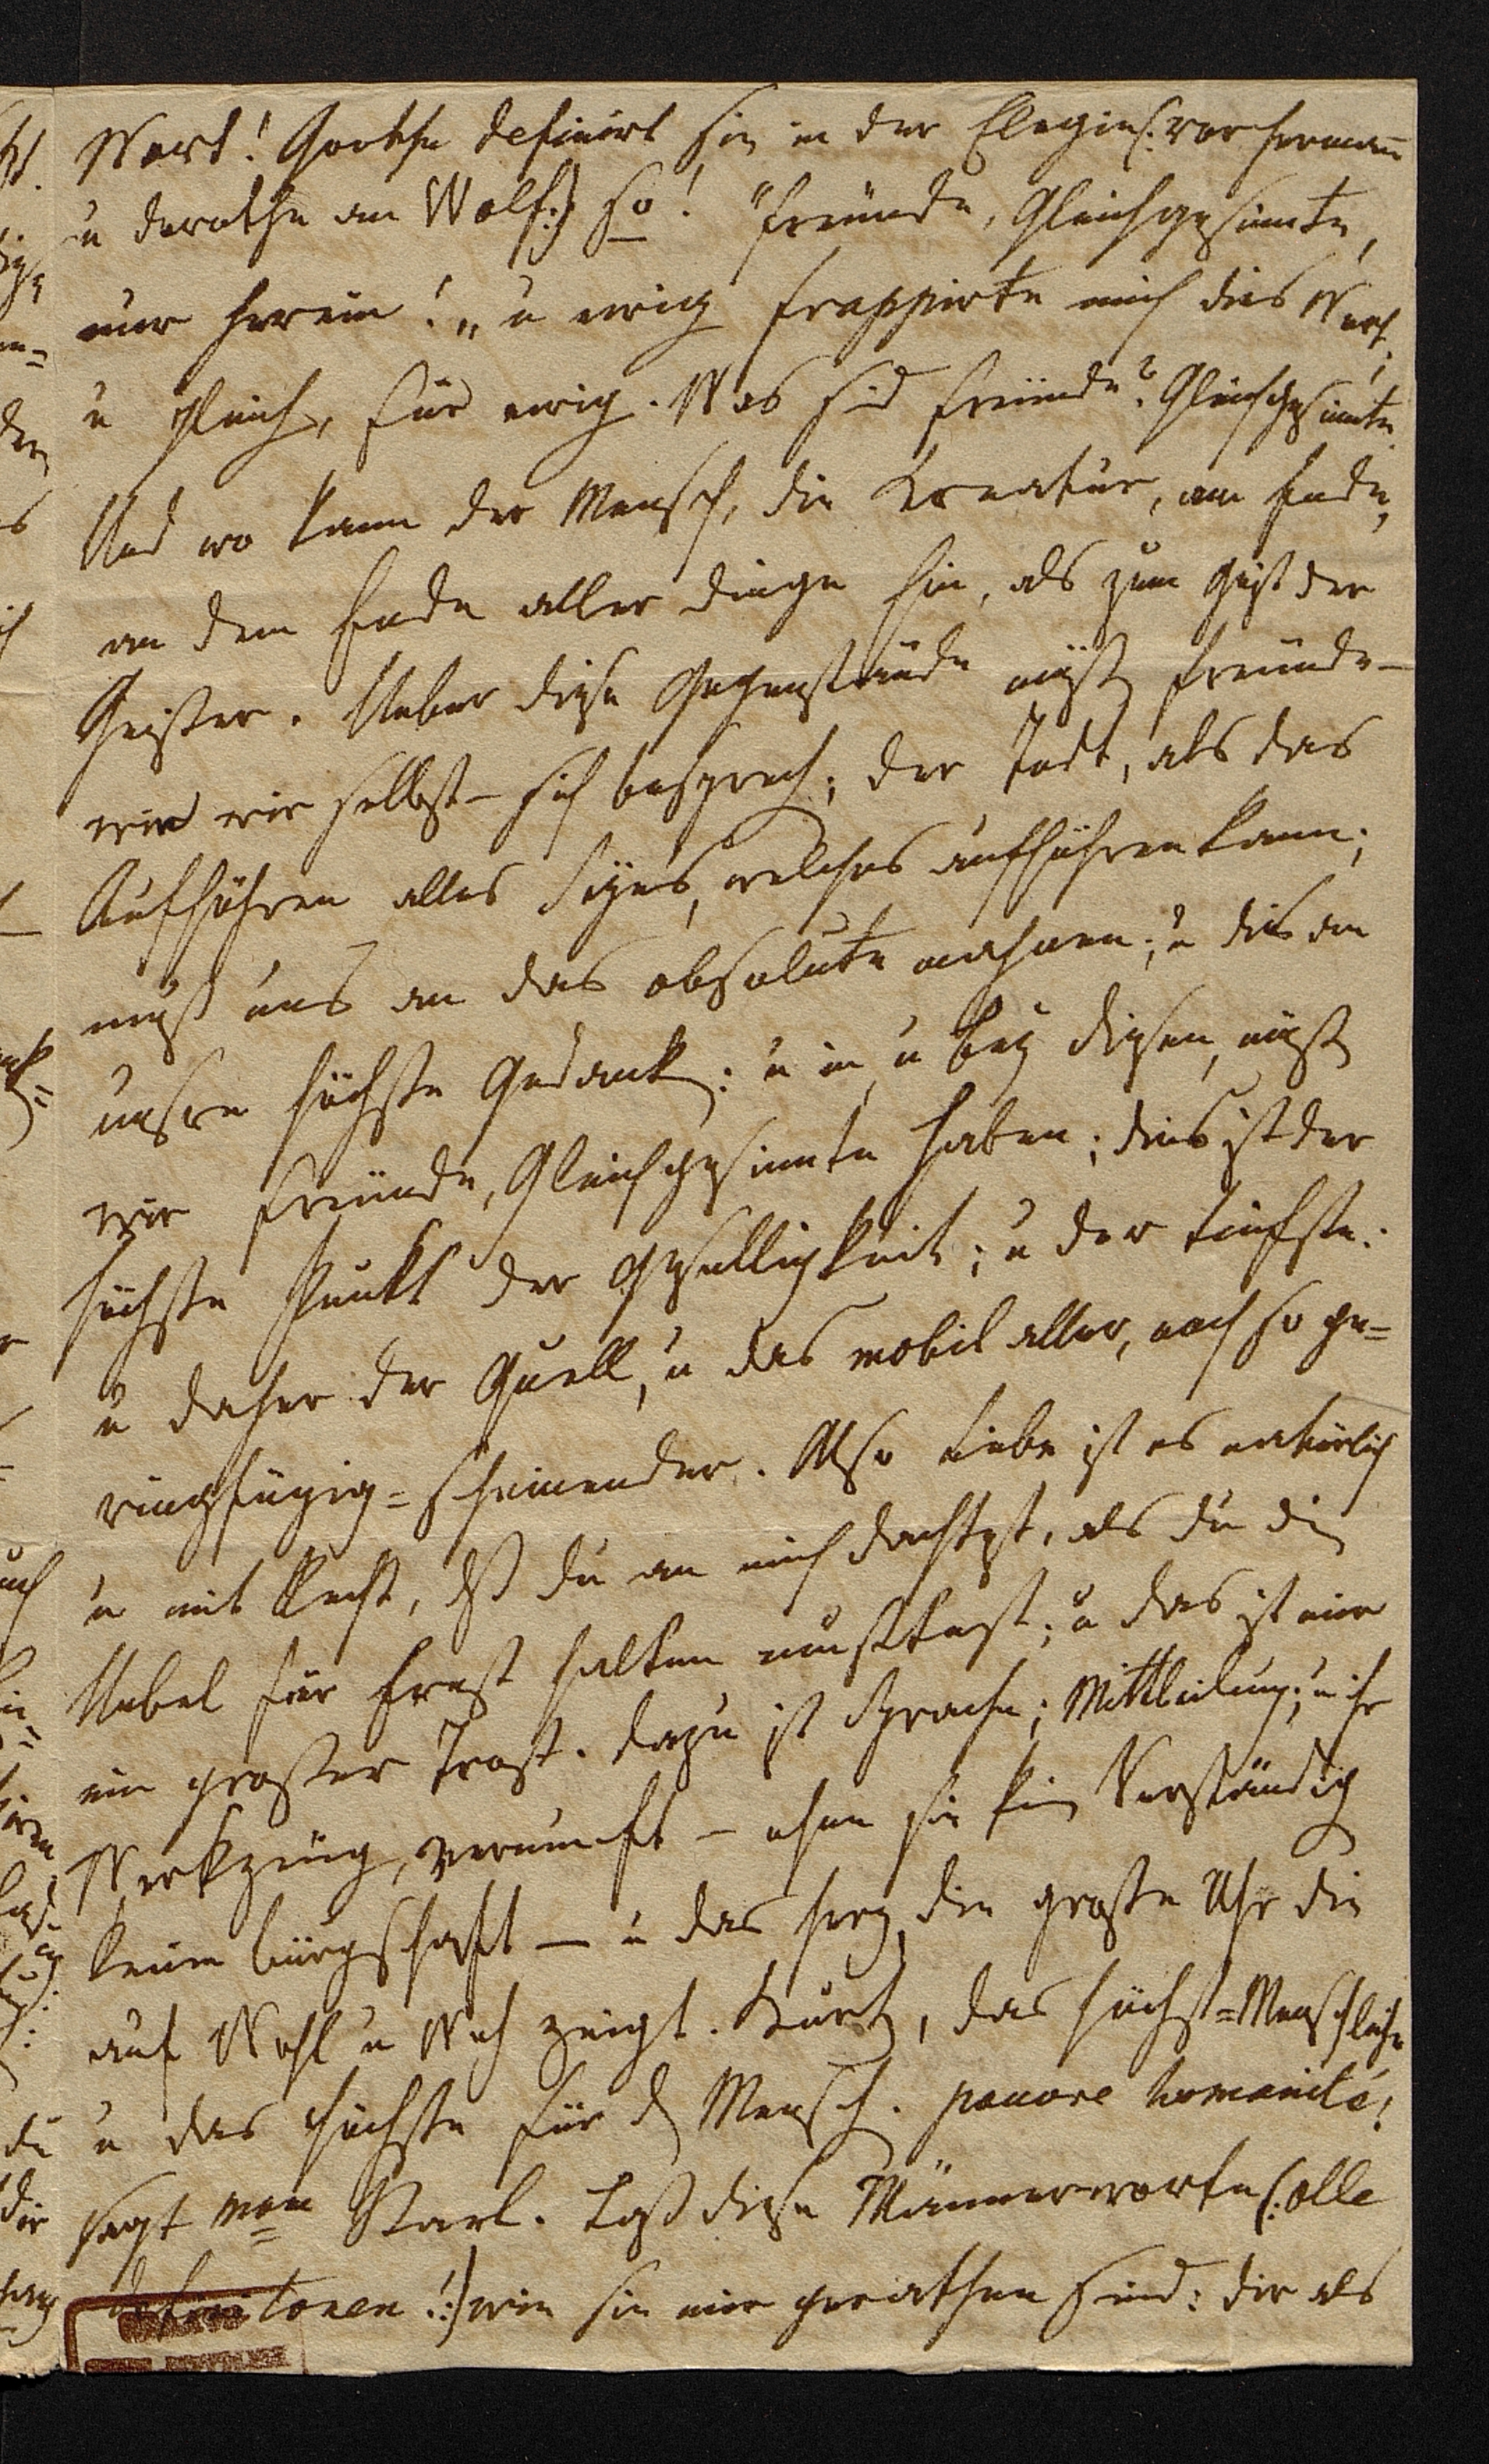 Wort! Goethe definirt sie in der Elegie (: vor Hermañ
u dorothe an Wolf:) so! „Freünde, Gleichgesinnte,
nur herein!„ u ewig frappirte mich dies Wort;
u gleich, für ewig. Was sind Freünde? Gleichgesinnte.
Und wo kann der Mensch, die Kreatur, am Ende,
an dem Ende aller dinge hin, als zum Geist der
Geister. Ueber diese Gegenstände müßen Freünde —
wie wir selbst — sich besprechen; der Todt, als das
Aufhöhren alles Seyns, welches aufhöhren kann;
muß uns an das absolute mahnen; u dies an
unsre höchste Gedanken: u in, u bey diesen, müßen
wir Freünde, Gleichgesinnte haben; dies ist der
höchste Punkt der Geselligkeit; u der tiefste:
u daher der Quell, u das mobil aller, noch so ge=
ringfügig=scheinender. Also Liebe ist es natürlich
u mit Recht, dß du an mich dachtest, als du die
Uebel für Ernst halten mußtest; u das ist mir
ein großer Trost. dazu ist Sprache; Mittheilung; u ihr
Werkzeüg, Vernunft — ohne sie kein Verständigen
keine bürgschaft — u das Herz, die große Uhr die
auf Wohl u Weh zeigt. Kurtz, das höchst=Menschliche
u das höchste für den Menschen. pauvre humanité!
sagt man Karl. Laß diese Männerworte (: alle
definitonen!:) wie sie mir gerathen sind: dir als